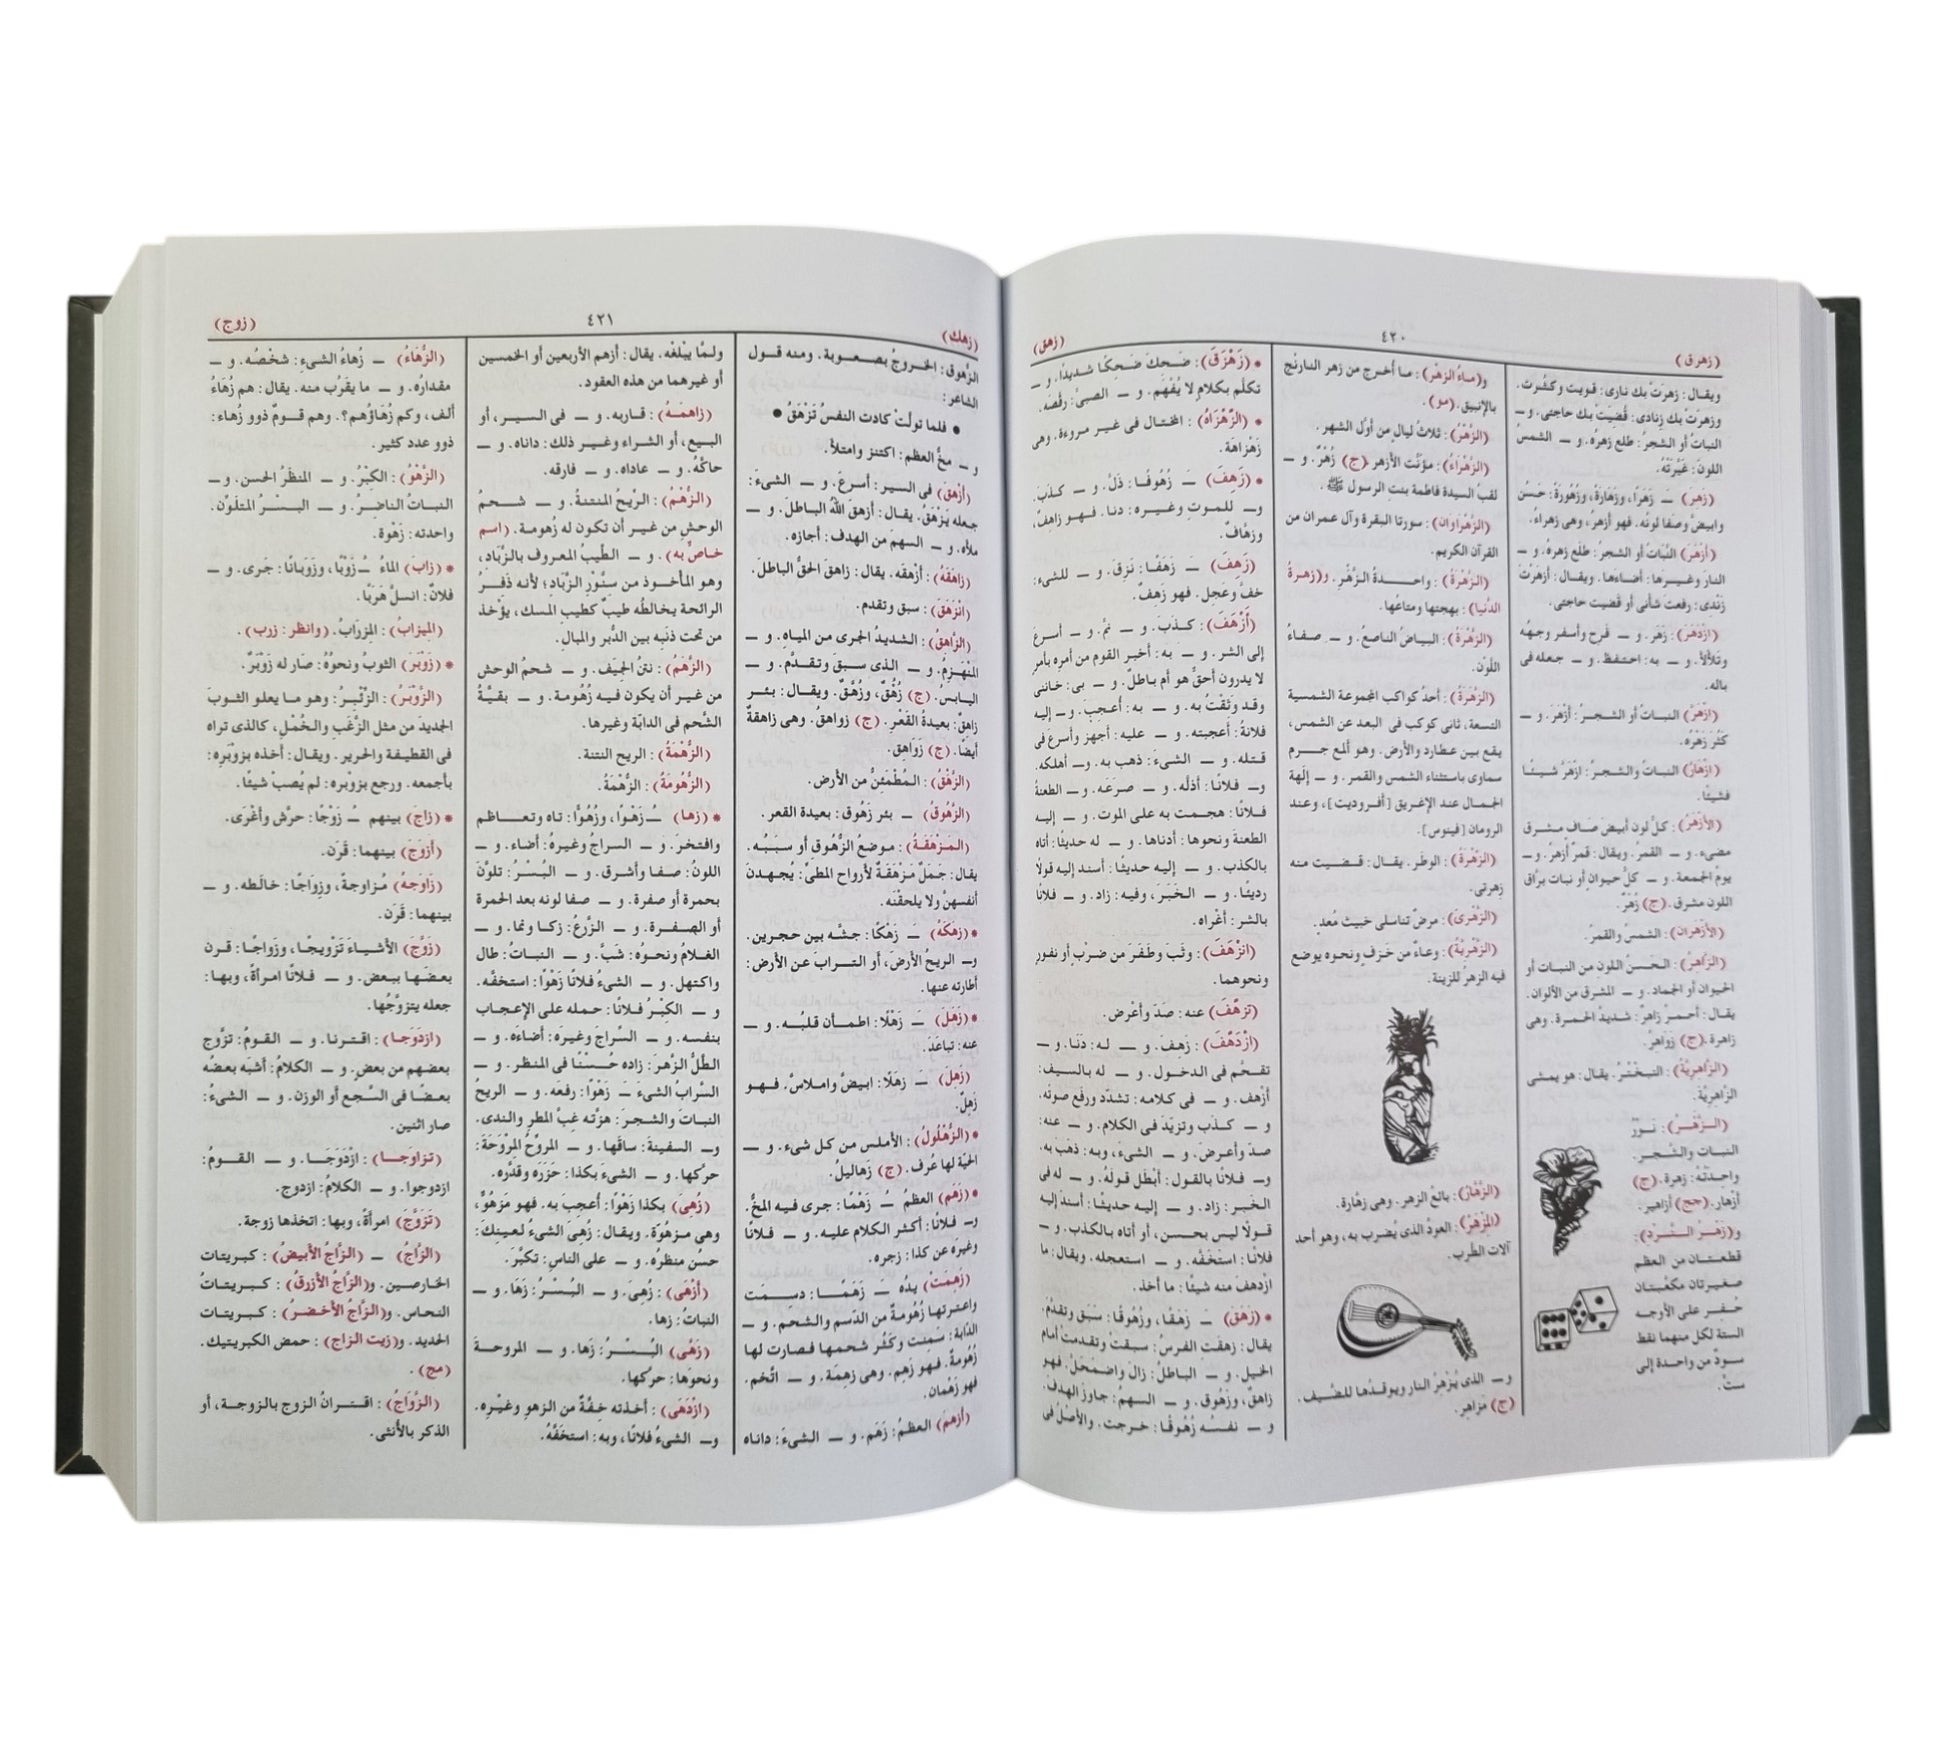 (زهرق)
٤٢٠
(زهق)
ويقال: زهرَتْ بك نارى: قويت وكثُرت.
وزهرَتْ بك زنادى: قُضيَتْ بك حاجتى. و –
النباتُ أو الشجرُ: طلع زهرُه. و – الشمسُ
اللونَ: غيَّرَتْهُ.
(زَهِرَ) – زَهَرًا، وزَهَارَةً، وزُهُورَةً: حَسُن
وابيضَّ وصفا لونُه. فهو أزهرُ، وهى زهراءُ.
(أزهَرَ) النَّباتُ أو الشجرُ: طلَع زهرُهُ. و –
النارَ وغيرها: أضاءَها. ويقال: أزهَرْتَ
زَنْدِى: رفعتَ شأنى أو قضيت حاجتى.
(ازْدَهَرَ): زَهَر. و – فَرِح وأسفر وجهُه
وتلألأ. و – به: احتفظ. و – جعله فى
باله.
(ازْهَرَّ) النباتُ أو الشجرُ: أزْهَرَ. و –
كثُر زَهْرُه.
(ازْهَارَّ) النباتُ والشجرُ: ازْهَرَّ شيئًا
فشيئًا.
(الأزْهَرُ): كلُّ لون أبيضَ صَافٍ مشرق
مضىء. و – القمرُ. ويقال: قمرٌ أزهرُ. و –
يومُ الجمعة. و – كلُّ حيوانٍ أو نبات برَّاق
اللون مشرق. (ج) زُهْرٌ.
(الأزْهَران): الشمسُ والقمرُ.
(الزَّاهِرُ): الحَسَنُ اللون من النبات أو
الحيوان أو الجماد. و – المشرق من الألوان.
يقال: أحمر زاهرٌ: شديدُ الحمرة. وهى
زاهرة. (ج) زواهرُ.
(الزَّاهِريَّةُ): التبخْتُر. يقال: هو يمشى
الزَّاهِريَّة.
(الزَّهْرُ): نَوْرُ
النبات والشَّجر.
واحِدَتُهُ: زهرة. (ج)
أزهار. (جج) أزاهير.
و(زَهْرُ النَّرْدِ):
قطعتان من العظم
صغيرتان مكعَّبتان
حُفِر على الأوجه
الستة لكل منهما نقط
سودٌ من واحدة إلى
ستّ.
و(ماءُ الزهْرِ): ما أُخرج من زهر النارنْج
بالإنبيق. (مو).
(الزُّهَرُ): ثلاثُ ليالٍ من أوَّل الشهر.
(الزَّهْرَاءُ): مؤنَّث الأزهر (ج) زُهْرٌ. و –
لقبُ السيدة فاطمة بنت الرسول ﷺ.
(الزَّهْراوان): سورتا البقرة وآل عمران من
القرآن الكريم.
(الزَّهْرَةُ): واحدةُ الزَّهْر. و(زهرةُ
الدُّنيا): بهجتها ومتاعُها.
(الزُّهْرَةُ): البياضُ الناصعُ. و – صفاءُ
اللَّوْن.
(الزُّهَرَةُ): أحدُ كواكب المجموعة الشمسية
التسعة، ثانى كوكب فى البعد عن الشمس،
يقع بين عطارد والأرض. وهو ألمع جرم
سماوى باستثناء الشمس والقمر. و – إلَهة
الجمال عند الإغريق [أفروديت]، وعند
الرومان [فينوس].
(الزِّهْرَةُ): الوطَر. يقال: قضيت منه
زِهرتى.
(الزُّهْرىُّ): مرضٌ تناسلى خبيث مُعدٍ.
(الزُّهْرِيَّةُ): وعاءٌ من خزف ونحوه يوضع
فيه الزهرُ للزينة.
(الزَّهَّارُ): بائعُ الزهر. وهى زهَّارة.
(المِزْهَرُ): العودُ الذى يُضرب به، وهو أحد
آلات الطَّرب.
و – الذى يُزْهِرُ النار ويوقدُها للضَّيف.
(ج) مَزَاهِر.
* (زَهْزَقَ): ضَحكَ ضَحِكًا شديدًا. و –
تكلَّم بكلامٍ لا يُفْهَم. و – الصبىَّ: رقَّصه.
* (الزَّهْزَاهُ): المختال فى غير مروءة. وهى
زَهْزاهَة.
* (زَهَفَ) – زُهُوفًا: ذلَّ. و – كذَبَ.
و – للموتِ وغيره: دنا. فهو زاهِفٌ،
وزهَّافٌ.
(زَهِفَ) – زَهَفًا: نَزِقَ. و – للشىء:
خفَّ وعَجِل. فهو زهِفٌ.
(أَزْهَفَ): كذَبَ. و – نمَّ. و – أسرعَ
إلى الشر. و – به: أخبر القوم من أمره بأمر
لا يدرون أحقٌّ هو أم باطلٌ. و – بى: خاننى
وقد وَثِقْتُ به. و – به: أُعجِبَ. و – إليه
فلانةُ: أعجبته. و – عليه: أجهز وأسرع فى
قتله. و – الشىءَ: ذهب به. و – أهلكه.
و – فلانًا: أذلَّه. و – صَرَعَه. و – الطعنةُ
فلانًا: هجمت به على الموت. و – إليه
الطعنةَ ونحوها: أدناها. و – له حديثًا: أتاه
بالكذب. و – إليه حديثًا: أسند إليه قولاً
رديئًا. و – الخَبَرَ، وفيه: زاد. و – فلانًا
بالشر: أغْراه.
(انْزَهَفَ): وثَبَ وطَفَر من ضَرْبٍ أو نفور
ونحوهما.
(تزهَّفَ) عنه: صَدَّ وأَعْرض.
(ازْدَهَفَ): زهِف. و – له: دَنَا. و –
تقحَّم فى الدخول. و – له بالسيف:
أزْهف. و – فى كلامه: تشدَّد ورفع صوتَه.
و – كذَب وتزيَّد فى الكلام. و – عنه:
صدَّ وأعرض. و – الشىء، وبه: ذهَبَ به.
و – فلانًا بالقول: أبْطَل قولَهُ. و – له فى
الخَبر: زاد. و – إليه حديثًا: أسندَ إليه
قولاً ليس بحسن، أو أتاه بالكذب. و –
فلانًا: استَخَفَّه. و – استعجله. ويقال: ما
ازْدهف منه شيئًا: ما أخذ.
* (زَهَق) – زَهَقًا، وزُهُوقًا: سبَق وتقدَّم.
يقال: زهقت الفرسُ: سبقتْ وتقدمتْ أمام
الخيل. و – الباطلُ: زالَ واضْمَحَلَّ. فهو
زاهِقٌ، وزَهُوق. و – السهمُ: جاوزَ الهدفَ.
و – نفسُه زُهُوقًا: خرجت. والأصلُ فى
(زهك)
٤٢١
(زوج)
الزُّهوق: الخروجُ بصعوبة. ومنه قول
الشاعر:
● فلما تولَّتْ كادت النفسُ تَزْهَقُ ●
و – مخُّ العظم: اكتنز وامتلأ.
(أزْهَقَ) فى السير: أسرعَ. و – الشىءَ:
جعله يَزْهَقُ. يقال: أزهقَ اللهُ الباطلَ. و –
ملأه. و – السهم من الهدف: أجازه.
(زاهَقَهُ): أزْهقَه. يقال: زاهقَ الحقُّ الباطلَ.
(انْزَهَقَ): سبق وتقدم.
(الزَّاهِقُ): الشديدُ الجرى من المياهِ. و –
المُنْهَزِمُ. و – الذى سبقَ وتقدَّم. و –
اليابسُ. (ج) زُهُقٌ، وزُهَّقٌ. ويقال: بئر
زاهِقٌ: بعيدةُ القَعْرِ. (ج) زواهقُ. وهى زاهقةٌ
أيضًا. (ج) زَوَاهِق.
(الزَّهَقُ): المُطْمَئِنُّ من الأرض.
(الزَّهُوقُ) – بئر زَهُوق: بعيدة القعر.
(المَزْهَقَةُ): موضعُ الزُّهُوق أو سبَبُه.
يقال: جَمَلٌ مَزْهَقَةٌ لأرواح المطىِّ: يُجهدن
أنفسهنَّ ولا يلحقْنَه.
* (زَهَكَهُ) – زَهْكًا: جشَّه بين حجرين.
و – الريحُ الأرضَ، أو الترابَ عن الأرض:
أطارته عنها.
* (زَهَلَ) – زَهْلًا: اطمأن قلبُه. و –
عنه: تباعَدَ.
(زَهِلَ) – زَهَلًا: ابيضَّ واملاسَّ. فهو
زَهِلٌ.
* (الزُّهْلُولُ): الأملس من كل شىء. و –
الحيَّة لها عُرف. (ج) زهاليلُ.
* (زَهَم) العظمُ – زَهْمًا: جرى فيه المخُّ.
و – فلانًا: أكثر الكلام عليه. و – فلانًا
وغيرَه عن كذا: زجره.
(زَهِمَتْ) يدُه – زَهَمًا: دسِمَت
واعترتها زُهُومةٌ من الدَّسم والشحم. و –
الدَّابة: سَمِنت وكَثُر شحمها فصارت لها
زُهُومةٌ. فهو زَهِم. وهى زَهِمَة. و – اتُّخم.
فهو زَهْمان.
(أزهمَ) العظمُ: زَهَم. و – الشىءَ: داناه
ولمَّا يبْلغْه. يقال: أزهم الأربعين أو الخمسين
أو غيرهما من هذه العقود.
(زاهَمَهُ): قاربه. و – فى السير، أو
البيع، أو الشراء وغير ذلك: داناه. و –
حاكَّهُ. و – عاداه. و – فارقه.
(الزُّهْمُ): الرِّيحُ المنتنةُ. و – شحمُ
الوحش من غير أن تكون له زُهومة. (اسم
خاصٌّ به). و – الطِّيبُ المعروف بالزَّباد،
وهو المأخوذ من سِنَّوْر الزَّبَاد؛ لأنه ذَفِرُ
الرائحة يخالطُه طيبٌ كطيب المسك، يؤْخذ
من تحت ذنَبه بين الدُّبر والمبال.
(الزَّهَمُ): نتنُ الجيَف. و – شحمُ الوحش
من غير أن يكون فيه زُهُومة. و – بقيَّةُ
الشَّحم فى الدابَّة وغيرها.
(الزُّهْمَةُ): الريح النتنة.
(الزُّهُومَةُ): الزُّهْمَةُ.
* (زها) – زَهْوًا، وزُهُوًّا: تاه وتعاظم
وافتخر. و – السراجُ وغيرهُ: أضاء. و –
اللونُ: صفا وأشرق. و – البُسْرُ: تلوَّنَ
بحمرة أو صفرة. و – صفا لونه بعد الحمرة
أو الصفرة. و – الزَّرعُ: زكا ونما. و –
الغلامُ ونحوهُ: شَبَّ. و – النباتُ: طال
واكتهل. و – الشىءُ فلانًا زَهْوًا: استخفَّه.
و – الكِبْرُ فلانًا: حمله على الإعجاب
بنفسه. و – السِّراجَ وغيرَه: أضاءَه. و –
الطَّلُّ الزَّهرَ: زاده حُسْنًا فى المنظر. و –
السَّرابُ الشىءَ – زَهْوًا: رفعَه. و – الريحُ
النباتَ والشجرَ: هزَّته غِبَّ المطر والندى.
و – السفينةَ: ساقَها. و – المروِّحُ المِرْوَحَةَ:
حرَّكها. و – الشىءَ بكذا: حَزَرَه وقدَّره.
(زُهِىَ) بكذا زَهْوًا: أُعجِبَ به. فهو مَزْهُوٌّ،
وهى مزهُوَّة. ويقال: زُهِىَ الشىءُ لعينِك:
حسُن منظرُه. و – على الناسِ: تكبَّرَ.
(أزْهَى): زُهِىَ. و – البُسْرُ: زَهَا. و –
النباتُ: زها.
(زَهَّى) البُسْرُ: زَها. و – المروحةَ
ونحوَها: حرَّكها.
(ازْدَهَى): أخذته خِفَّةٌ من الزهوِ وغيْرِه.
و – الشىءُ فلانًا، وبه: استَخَفَّهُ.
(الزُّهَاءُ) – زُهاءُ الشىءِ: شخْصُه. و –
مقدارُه. و – ما يَقرُب منه. يقال: هم زُهاءُ
ألف، وكم زُهَاؤُهم؟. وهم قومٌ ذوو زُهاء:
ذوو عدد كثير.
(الزَّهْوُ): الكِبْرُ. و – المنظَرُ الحسن. و –
النباتُ الناضِرُ. و – البسْرُ المتلوِّن.
واحدته: زَهْوة.
* (زابَ) الماءُ – زَوْبًا، وزَوَبَانًا: جَرى. و –
فلانٌ: انسلَّ هَرَبًا.
(الميزابُ): المِزرَابُ. (وانظر: زرب).
* (زَوْبَرَ) الثوبُ ونحوُهُ: صَار له زَوْبَرٌ.
(الزَّوْبَرُ): الزِّئْبِرُ: وهو ما يعلو الثوبَ
الجديدَ من مثل الزَّغَبِ والخُمْلِ، كالذى تراه
فى القطيفة والحرير. ويقال: أخذه بزوْبَرِه:
بأجمعه. ورجع بزوْبره: لم يُصبْ شيئًا.
* (زاجَ) بينهم – زَوْجًا: حرَّش وأَغْرَى.
(أزوَجَ) بينهما: قَرَن.
(زَاوَجهُ) مُزاوجةً، وزِواجًا: خالَطه. و –
بينهما: قَرَن.
(زَوَّجَ) الأشياءَ تَزْويجًا، وزَواجًا: قرن
بعضَها ببعض. و – فلانًا امرأةً، وبها:
جعله يتزوَّجُها.
(ازدَوَجَا): اقترنا. و – القومُ: تزوَّج
بعضهم من بعض. و – الكلامُ: أشبَه بعضُه
بعضًا فى السَّجع أو الوزن. و – الشىءُ:
صار اثنين.
(تزاوجا): ازْدَوَجَا. و – القومُ:
ازدوجوا. و – الكلامُ: ازدوج.
(تَزَوَّجَ) امرأةً، وبها: اتخذها زوجة.
(الزَّاجُ) – (الزَّاجُ الأبيضُ): كبريتات
الخارصين. و(الزَّاجُ الأزرقُ): كبريتاتُ
النحاس. و(الزَّاجُ الأخضرُ): كبريتات
الحديد. و(زيت الزاج): حمض الكبريتيك.
(مج).
(الزَّوَاجُ): اقترانُ الزوج بالزوجة، أو
الذكر بالأُنثى.